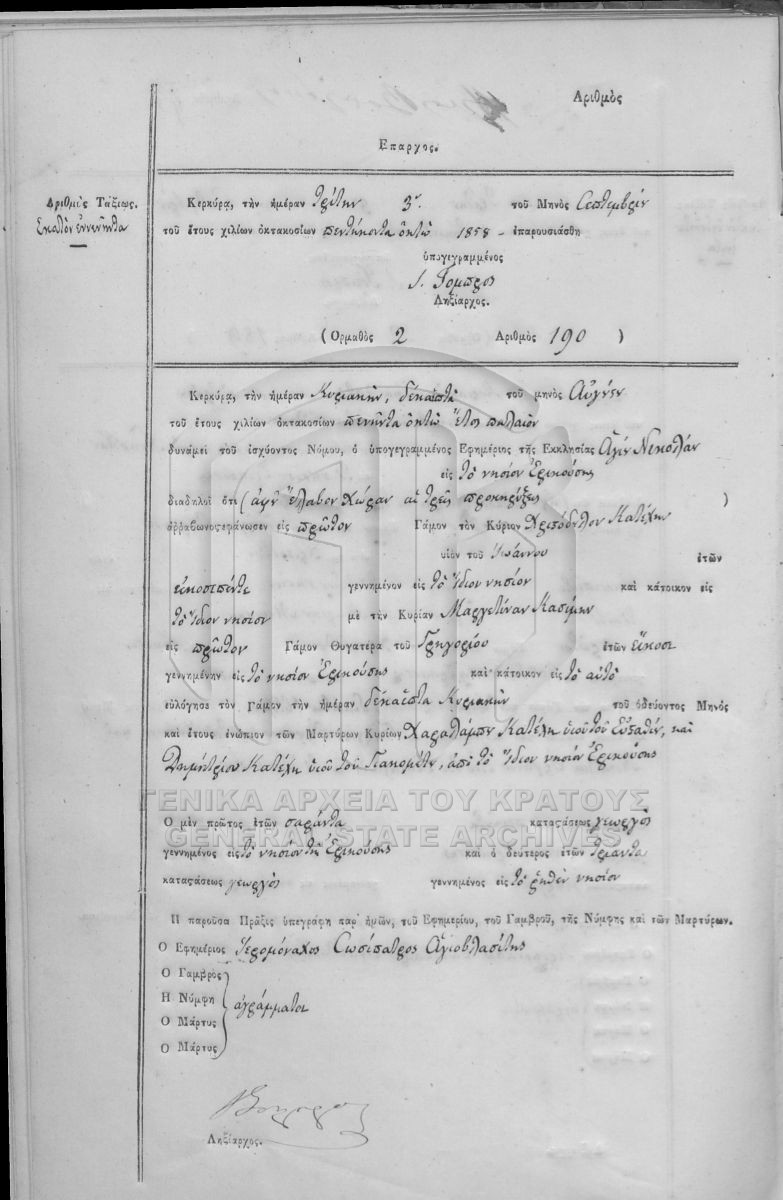 Αριθμὸς
Επαρχος.
Αριθμὸς Τάξεως.
Ἑκατὸν ἐννενῆντα
Κερκύρα, τὴν ἡμέραν τρίτην 3ην τοῦ Μηνὸς Σεπτεμβρίου
τοῦ ἔτους χιλίων ὀκτακοσίων πεντήκοντα ὀκτὼ 1858 - ἐπαρουσιάσθη
ὑπογεγραμμένος
Ληξίαρχος.
(Ορμαθὸς 2 Αριθμὸς 190 )
Κερκύρα, τὴν ἡμέραν Κυριακὴν, δέκαεπτὰ τοῦ μηνὸς Αὐγούστου
τοῦ ἔτους χιλίων ὀκτακοσίων πενῆντα ὀκτὼ ἔτος παλαιὸν
δυνάμει τοῦ ἰσχύοντος Νόμου, ὁ ὑπογεγραμμένος Εφημέριος τῆς Εκκλησίας Ἁγίου Νικολάου
εἰς τὸ νησίον Ἐρικούσης
διαδηλοῖ ὅτι (ἀφοῦ ἔλαβον χώραν αἱ τρεῖς προκηρύξεις )
ἀρραβωνοςεφάνωσεν εἰς πρῶτον Γάμον τὸν Κύριον Χριστόδουλον Κατέχην
υἱὸν τοῦ Ἰωάννου ἐτῶν
εἰκοσιπέντε γεννημένον εἰς τὸ ἴδιον νησίον καὶ κάτοικον εἰς
τὸ ἴδιον νησίον μὲ τὴν Κυρίαν Μαργετίναν Κασίμην
εἰς πρῶτον Γάμον Θυγατέρα τοῦ Γρηγορίου ἐτῶν εἴκοσι
γεννημένην εἰς τὸ νησίον Ἐρικούσης καὶ κάτοικον εἰς τὸ αὐτὸ
εὐλόγησε τὸν Γάμον τὴν ἡμέραν δέκαεπτὰ Κυριακὴν τοῦ ὁδεύοντος Μηνὸς
καὶ ἔτους ἐνώπιον τῶν Μαρτύρων Κυρίων Χαραλάμπου Κατέχη υἱοῦ τοῦ Εὐσταθίου, καὶ
Δημητρίου Κατέχη υἱοῦ τοῦ, ἀπὸ τὸ ἴδιον νησίον Ἐρικούσης
ΓΕΝΙΚΑ ΑΡΧΕΙΑ ΤΟΥ ΚΡΑΤΟΥΣ
Ο μὲν πρῶτος ἐτῶν σαράντα καταςάσεως γεωργὸς
GENERAL STATE ARCHIVES
γεννημένος εἰς τὸ νησίον τῆς Ἐρικούσης καὶ ὁ δεύτερος ἐτῶν τριάντα
καταςάσεως γεωργὸς γεννημένος εἰς τὸ ῥηθὲν νησίον
Η παροῦσα Πρᾶξις ὑπεγράφη παρ' ἡμῶν, τοῦ Εφημερίου, τοῦ Γαμβροῦ, τῆς Νύμφης καὶ τῶν Μαρτύρων.
Ο Εφημέριος Ἱερομόναχος Σωσίπατρος Ἁγιοβλασίτης
Ο Γαμβρὸς
Η Νύμφη ἀγράμματοι
Ο Μάρτυς
Ο Μάρτυς
Ληξίαρχος.